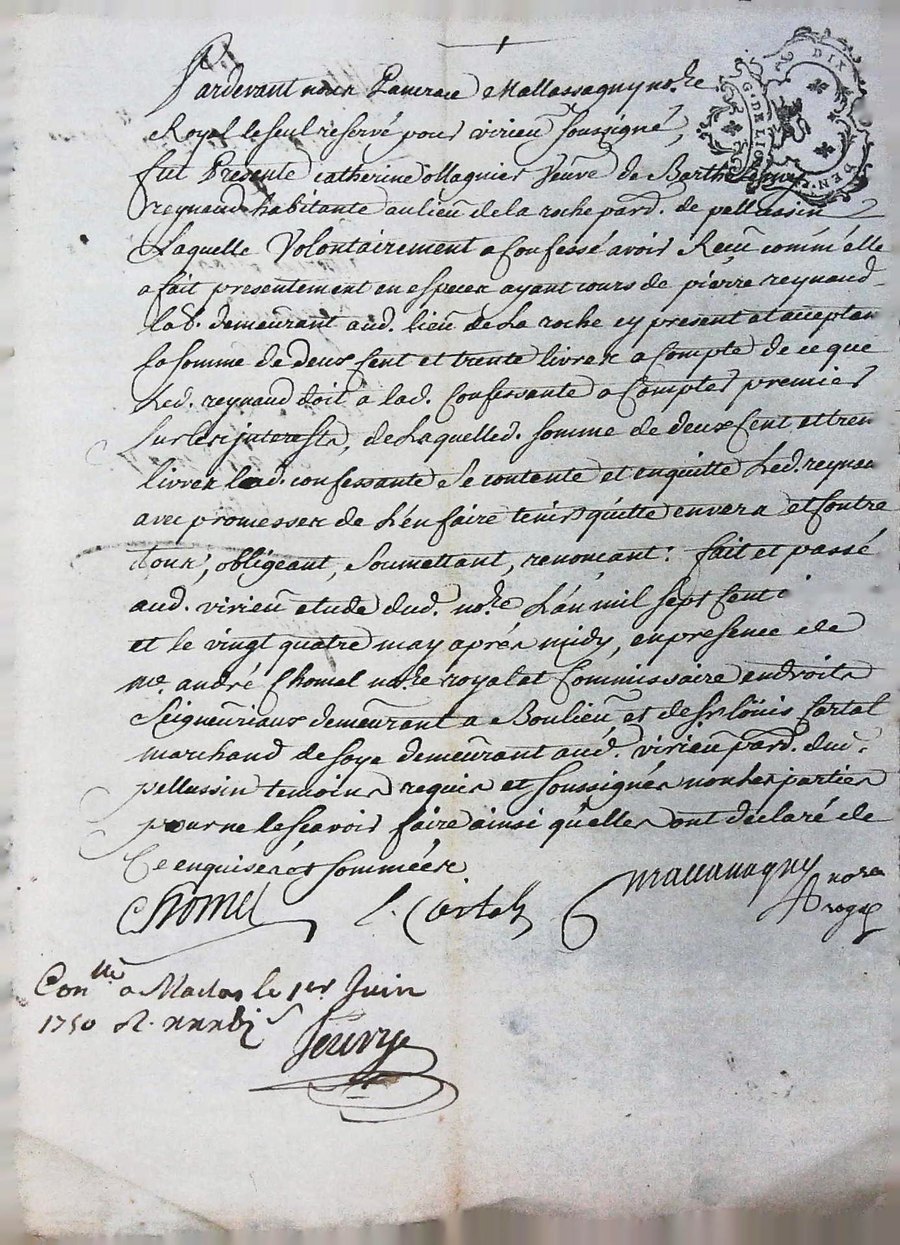 Pardevant nous Pancrace Mallassagny no.re
Royal le seul reservé pour virieu soussigné,
fut Presente catherine Magnier Veuve de Barthelemy
reynaud habitante au lieu de la roche pard. de pellussin
Laquelle Volontairement a confessé avoir Receu comm'elle
a fait presentement en especes ayant cours de pierre reynaud
lab. demeurant aud. lieu de La roche cy present et acceptan
la somme de deux cent et trente livres a compte de ce que
Led. reynaud doit a lad. confessante a compter premier
sur les interests, de Laquelled. somme de deux cent et tren
livres lad. confessante se contente et enquitte Led. reynau
avec promesses de L'en faire tenir quitte envers et contre
tous, obligeant, soumettant, renoncant: fait et passé
aud. virieu etude dud. no.re L'an mil sept cent
et le vingt quatre may aprés midy, en presence de
me. andré Chomel no.re royal et Commissaire en droits
Seigneuriaux demeurant a Boulieu et de sr. loüis Cartal
marchand de soye demeurant aud. virieu pard. dud.
pellussin temoins requis et soussignés non les parties
pour ne le scavoir faire ainsi qu'elles ont declaré de
Ce enquises et sommées
Chomel L. Cartal
nore
royal
Con.llé a Maclas le 1er Juin
1750 R.
DIX
DEN.
G. DE LION